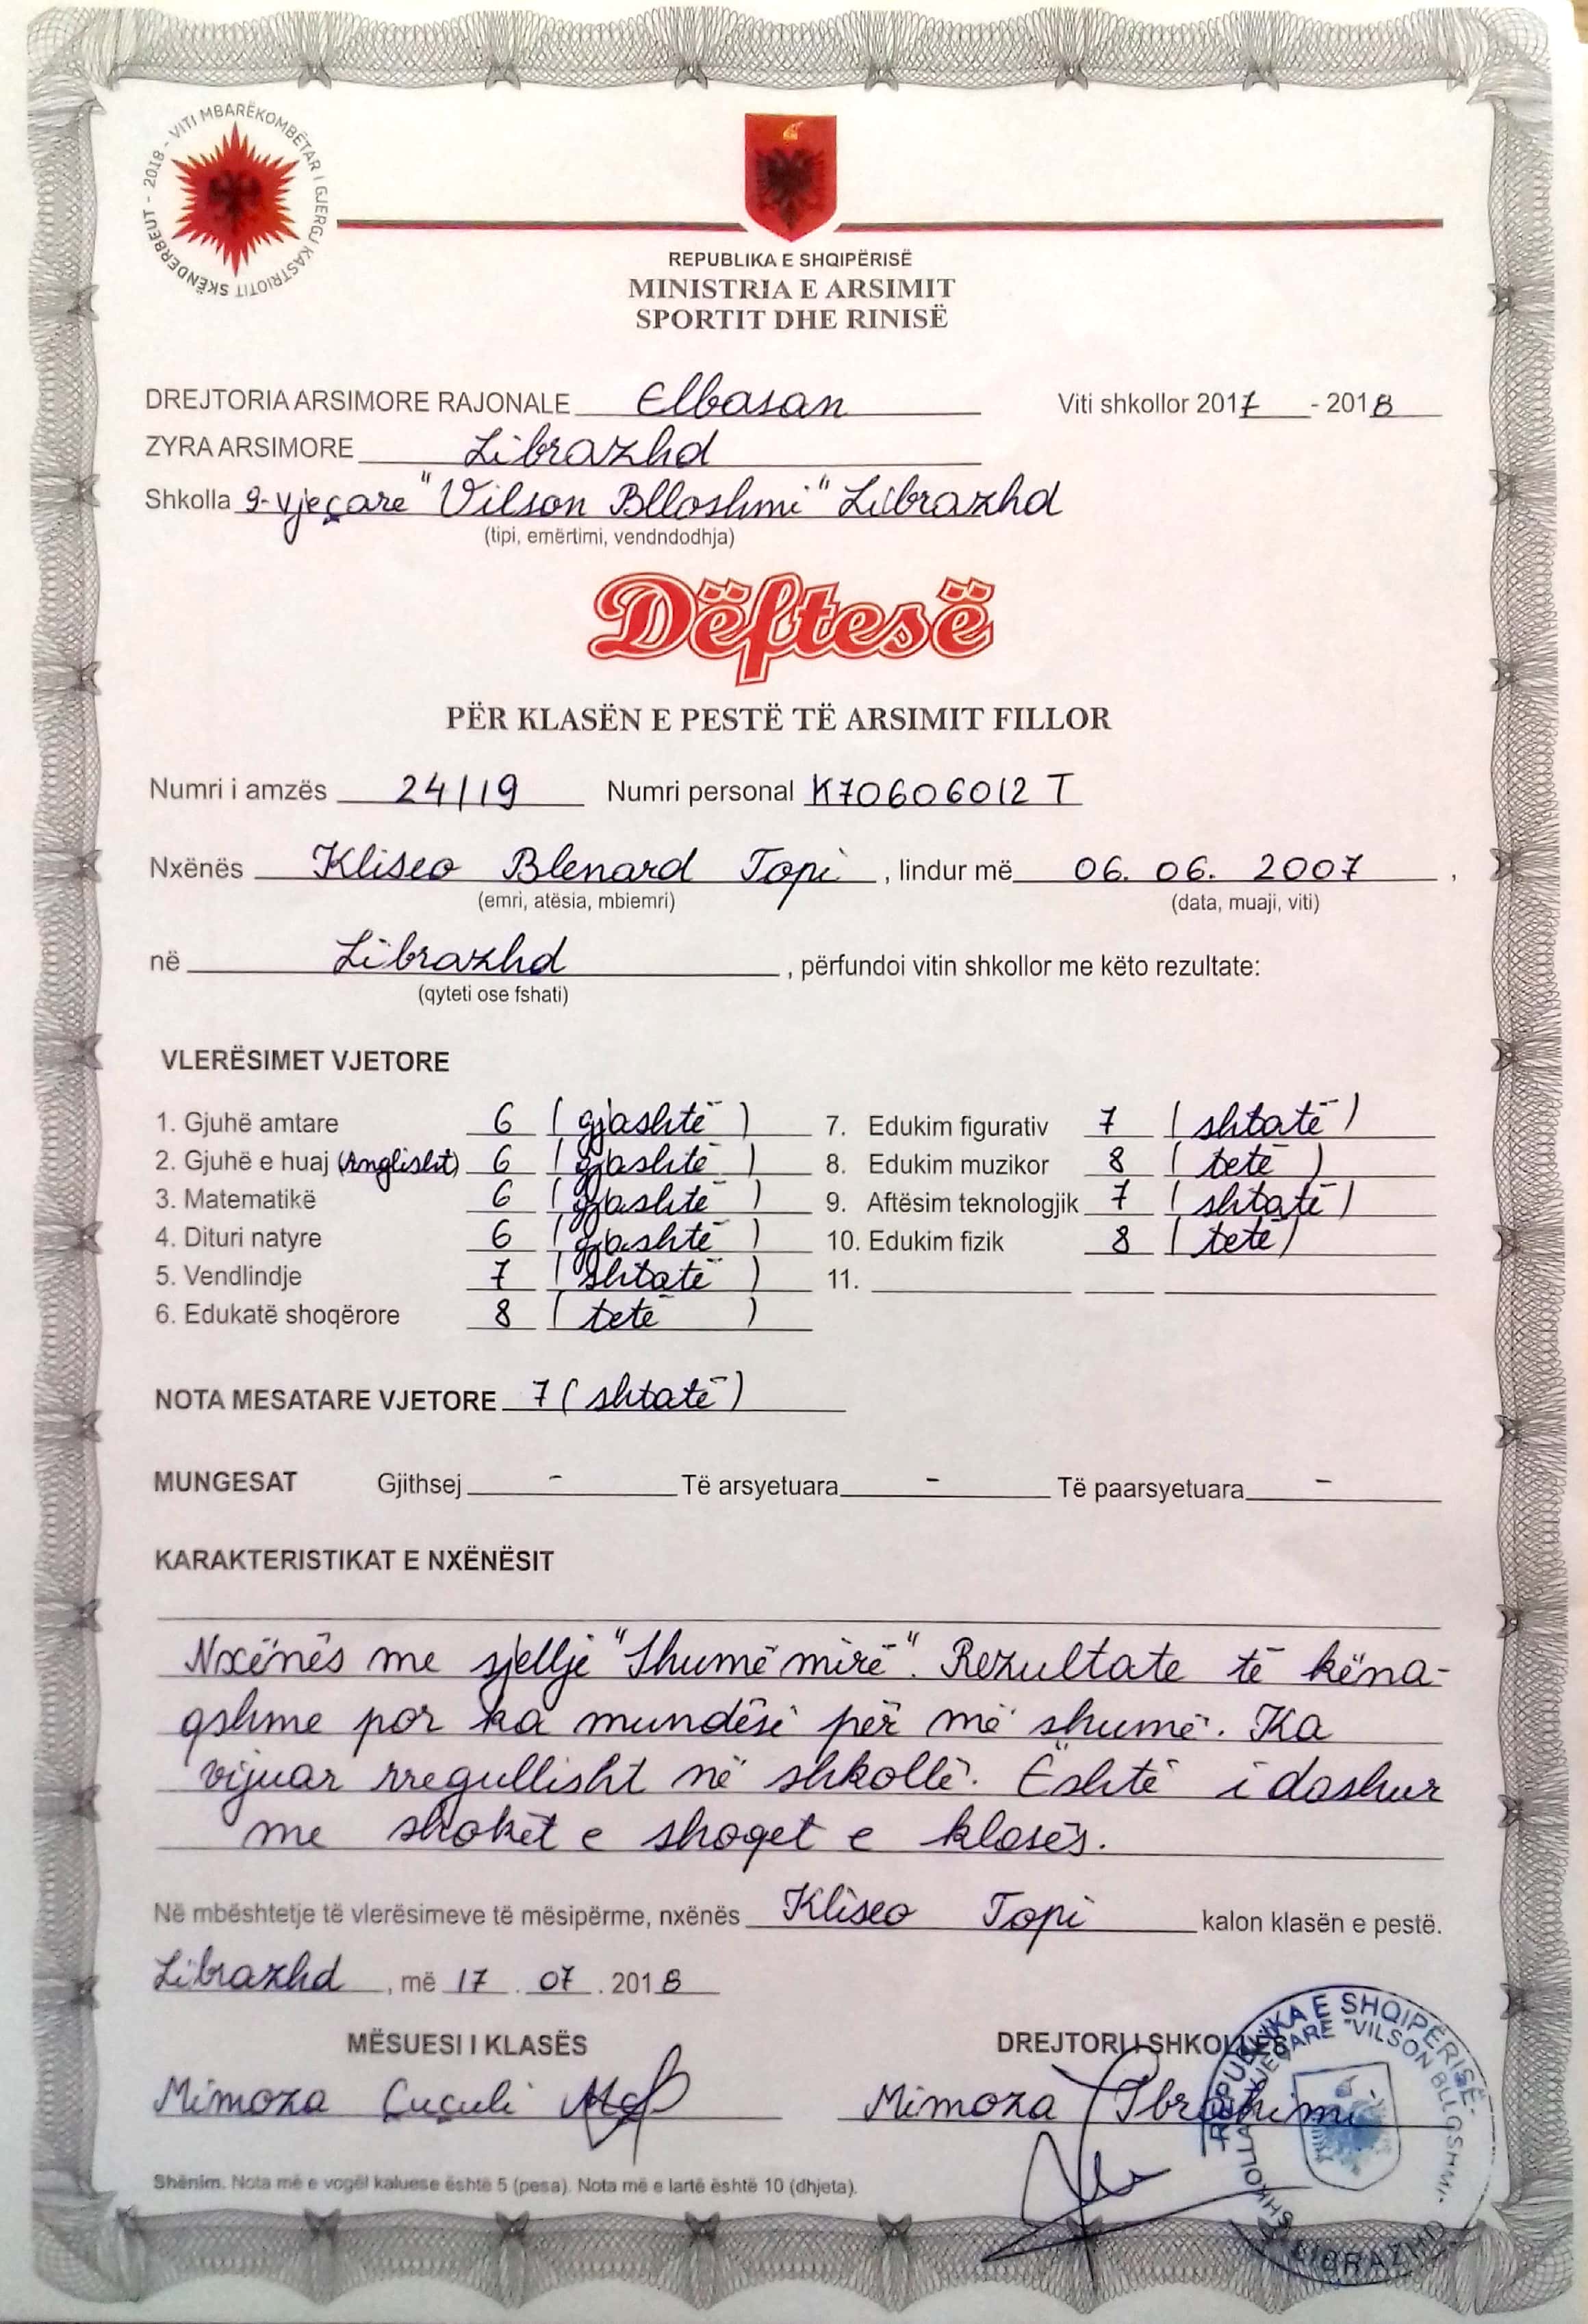 2018 - VITI MBARËKOMBËTAR I GJERGJ KASTRIOTIT SKËNDERBEUT -
REPUBLIKA E SHQIPËRISË
MINISTRIA E ARSIMIT
SPORTIT DHE RINISË
DREJTORIA ARSIMORE RAJONALE Elbasan Viti shkollor 2017 - 2018
ZYRA ARSIMORE Librazhd
Shkolla 9-vjeçare "Vilson Blloshmi" Librazhd
(tipi, emërtimi, vendndodhja)
Dëftesë
PËR KLASËN E PESTË TË ARSIMIT FILLOR
Numri i amzës 24/19 Numri personal K70606012T
Nxënës Kliseo Blenard Topi, lindur më 06. 06. 2007,
(emri, atësia, mbiemri) (data, muaji, viti)
në Librazhd, përfundoi vitin shkollor me këto rezultate:
(qyteti ose fshati)
VLERËSIMET VJETORE
1. Gjuhë amtare 6 (gjashtë)
2. Gjuhë e huaj (Anglisht) 6 (gjashtë)
3. Matematikë 6 (gjashtë)
4. Dituri natyre 6 (gjashtë)
5. Vendlindje 7 (shtatë)
6. Edukatë shoqërore 8 (tetë)
7. Edukim figurativ 7 (shtatë)
8. Edukim muzikor 8 (tetë)
9. Aftësim teknologjik 7 (shtatë)
10. Edukim fizik 8 (tetë)
11.
NOTA MESATARE VJETORE 7 (shtatë)
MUNGESAT Gjithsej - Të arsyetuara - Të paarsyetuara -
KARAKTERISTIKAT E NXËNËSIT
Nxënës me sjellje "Shumë mirë". Rezultate të këna-
qshme por ka mundësi për më shumë. Ka
vijuar rregullisht në shkollë. Është i dashur
me shokët e shoqet e klasës.
Në mbështetje të vlerësimeve të mësipërme, nxënës Kliseo Topi kalon klasën e pestë.
Librazhd, më 17.07.2018
MËSUESI I KLASËS DREJTORI I SHKOLLËS
Mimoza Çuçuli Mimoza Ibrahimi
REPUBLIKA E SHQIPËRISË
SHKOLLA 9-VJEÇARE "VILSON BLLOSHMI"
LIBRAZHD
Shënim. Nota më e vogël kaluese është 5 (pesa). Nota më e lartë është 10 (dhjeta).